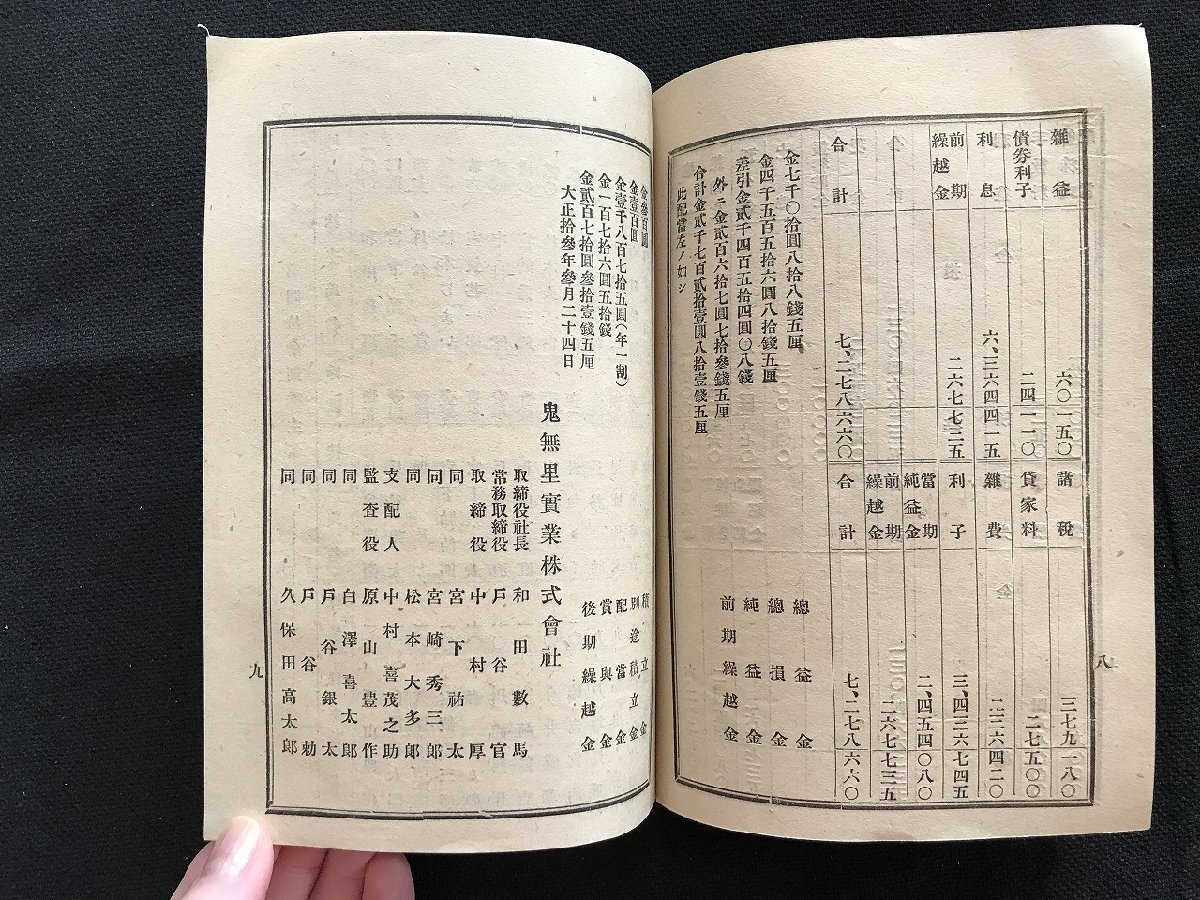 雑益 六〇一五〇 諸税 三七九一八〇
債劵利子 二四一一〇 貸家料 二七五〇〇
利息 六、三六四四一五 雑費 二二六四二〇
前期繰越金 二六七七二五 利子 三、四三六七四五
當期純益金 二、四五四〇八〇
前期繰越金 二六七七三五
合計 七、二七八六六〇 合計 七、二七八六六〇
金七千〇拾圓八拾八錢五厘 總益金
金四千五百五拾六圓八拾錢五厘 總損金
差引金貳千四百五拾四圓〇八錢 純益金
外ニ金貳百六拾七圓七拾參錢五厘 前期繰越金
合計金貳千七百貳拾壹圓八拾壹錢五厘
此配當左ノ如シ
八
金參百圓 積立金
金壹百圓 別途積立金
金壹千八百七拾五圓(年一割) 配當金
金一百七拾六圓五拾錢 賞與金
金貳百七拾圓參拾壹錢五厘 後期繰越金
大正拾參年參月二十四日
鬼無里實業株式會社
取締役社長 和田數馬
常務取締役 戸谷官
取締役 中村厚
同 宮下祐太
同 宮崎秀三郎
同 松本大多郎
支配人 中村喜茂之助
監査役 原山豊作
同 白澤喜太郎
同 戸谷銀太
同 戸谷勅
同 久保田高太郎
九